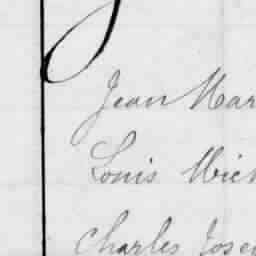 Jean Mar
Louis Mich
Charles Jose